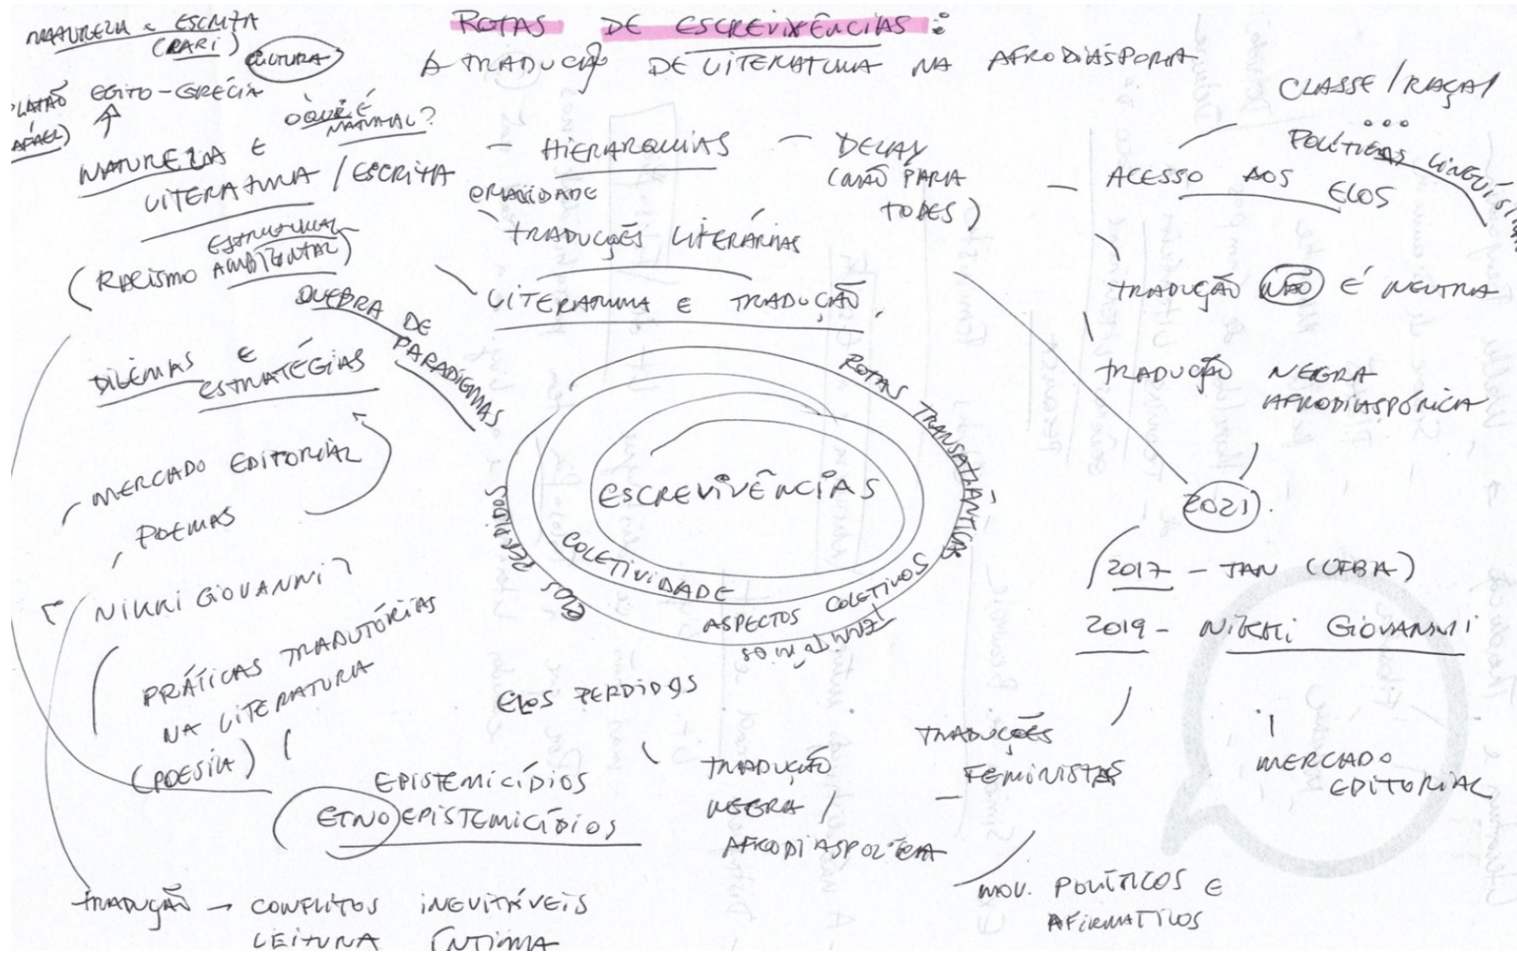 ROTAS DE ESCREVIVÊNCIAS:
A TRADUÇÃO DE LITERATURA NA AFRODIÁSPORA
NATUREZA E ESCRITA
(PARI)
CULTURA
PLATÃO EGITO-GRÉCIA
RAFAEL)
O QUE É
NATURAL?
NATUREZA E
LITERATURA / ESCRITA
ESTRUTURAL
(RACISMO AMBIENTAL)
QUEBRA DE
PARADIGMAS
DILEMAS E
ESTRATÉGIAS
MERCADO EDITORIAL
POEMAS
NIKKI GIOVANNI
PRÁTICAS TRADUTÓRIAS
NA LITERATURA
(POESIA)
TRADUÇÃO → CONFLITOS INEVITÁVEIS
LEITURA ÍNTIMA
- HIERARQUIAS - DELAY
(NÃO PARA
TODES)
ORALIDADE
TRADUÇÕES LITERÁRIAS
LITERATURA E TRADUÇÃO
ESCREVIVÊNCIAS
COLETIVIDADE
ROTAS TRANSATLÂNTICAS
ASPECTOS COLETIVOS
TERRITÓRIOS
ELOS PERDIDOS
ELOS PERDIDOS
EPISTEMICÍDIOS
ETNOEPISTEMICÍDIOS
TRADUÇÃO
NEGRA /
AFRODIASPÓRICA
TRADUÇÕES
- FEMINISTAS
MOV. POLÍTICOS E
AFIRMATIVOS
CLASSE / RAÇA /
...
POLÍTICAS LINGUÍSTICAS
- ACESSO AOS ELOS
TRADUÇÃO NÃO É NEUTRA
TRADUÇÃO NEGRA
AFRODIASPÓRICA
2021
2017 - JAN (UFBA)
2019 - NIKKI GIOVANNI
MERCADO
EDITORIAL